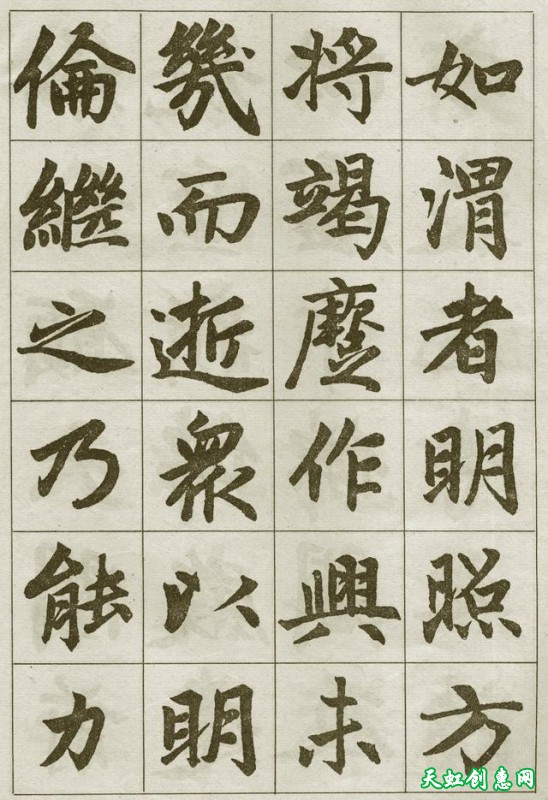 如渭者明照方
将竭作興未
幾而逝衆以明
倫繼之乃能力
天虹创惠网